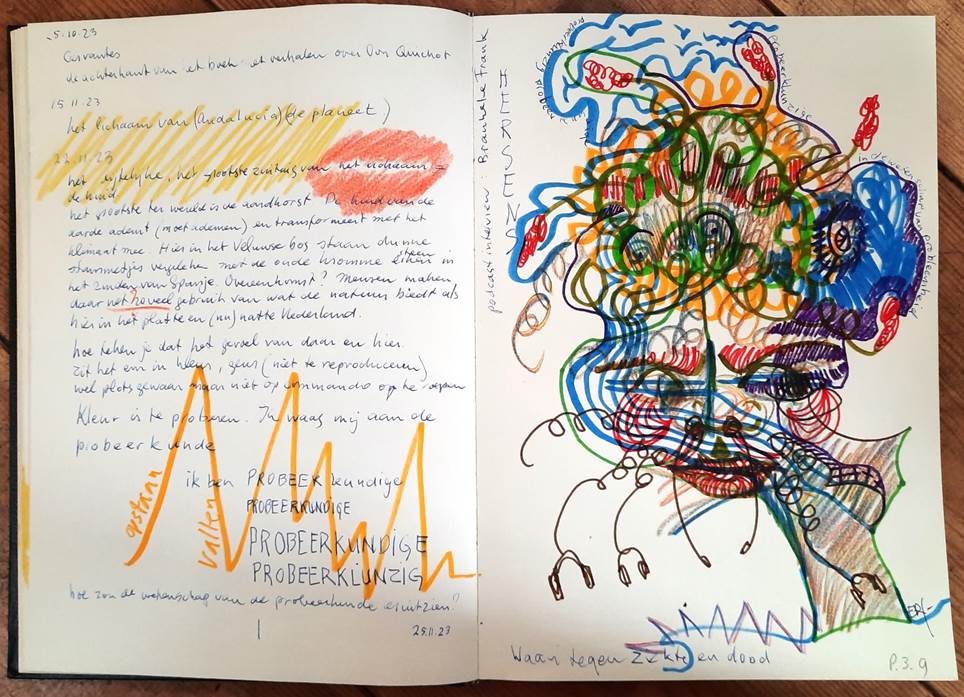 25.10.23
Cervantes
de achterkant van het boek met verhalen over Don Quichot
15.11.23
het lichaam van (Andalucia) (de planeet)
22.11.23
het lijfelijke, het grootste zintuig van het lichaam =
de huid
het grootste ter wereld is de aardkorst. De huid van de
aarde ademt (moet ademen) en transformeert met het
klimaat mee. Hier in het Veluwse bos staan dunne
stammetjes vergeleken met de oude kromme eiken in
het zuiden van Spanje. Overeenkomst? Mensen maken
daar net zoveel gebruik van wat de natuur biedt als
hier in het platte en (nu) natte Nederland.
hoe teken je dat het gevoel van daar en hier.
zit het em in kleur, geur (niet te reproduceren)
wel plots gewaar maar niet op commando op te roepen
Kleur is te proberen. Ik waag mij aan de
probeerkunde
ik ben PROBEERkundige
PROBEERKUNDIGE
PROBEERKUNDIGE
PROBEERKUNZIG
opstaan
vallen
hoe zou de wetenschap van de probeerkunde eruitzien?
1
25.11.23
podcastinterview: Brankele Frank
HERSENS
Probeerkunzige
in de weer van problemen
Waan tegen ziekte en dood
P.3.9